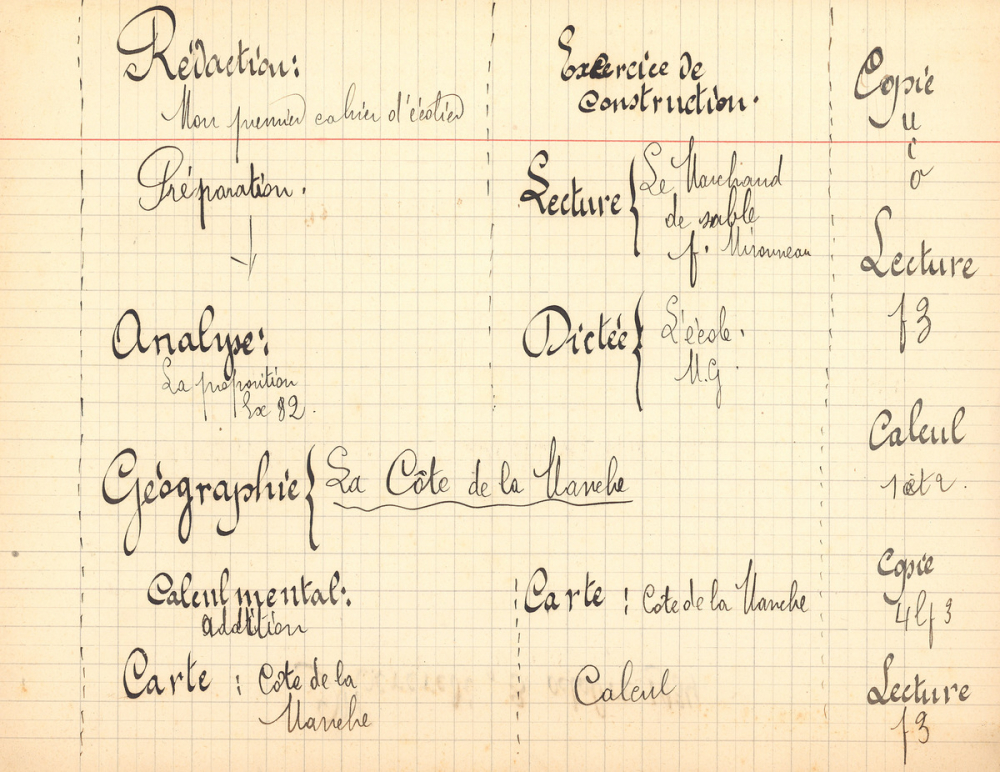 Rédaction:
Mon premier cahier d'écolier
Préparation.
Analyse:
La proposition
Ex 82.
Géographie { La Côte de la Manche
Calcul mental:
addition
Carte : Côte de la
Manche
Exercice de
construction.
Lecture { Le Marchand
de sable
f. Mironneau
Dictée { L'école.
M.G.
Carte : Côte de la Manche
Calcul
Copie
u
i
o
Lecture
f 3
Calcul
1 et 2.
Copie
4 l f 3
Lecture
f 3